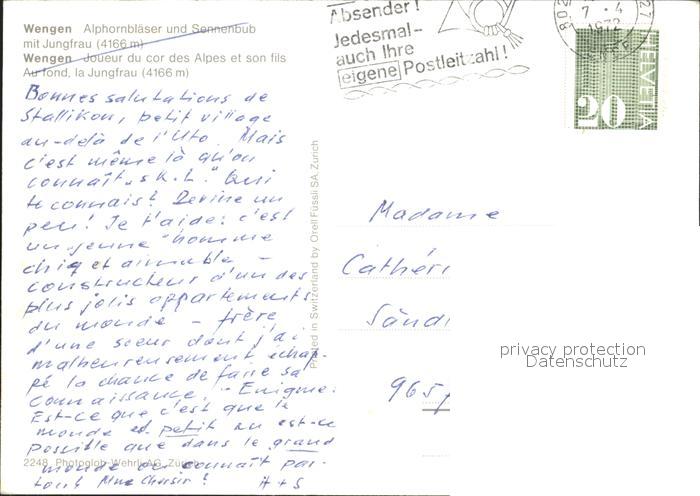 Wengen Alphornbläser und Sennenbub
mit Jungfrau (4166 m)
Wengen Joueur du cor des Alpes et son fils
Au fond, la Jungfrau (4166 m)
Bonnes salutations de
Stallikon, petit village
au-delà de l'Uto. Mais
c'est même là qu'on
connaît „S.K.L." Qui
te connais? Devine un
peu! Je t'aide: c'est
un "jeune" homme
chiq et aimable –
constructeur d'un des
plus jolis appartements
du monde – frère
d'une soeur dont j'ai
malheureusement échap-
pé la chance de faire sa
connaissance. – Enigme:
Est-ce que c'est que le
monde est petit ou est-ce
possible que dans le grand
monde on connaît par-
tout Mme Choisir? H+S
2248 Photoglob-Wehrli AG, Zürich
Printed in Switzerland by Orell Füssli SA, Zurich
Absender!
Jedesmal-
auch Ihre
eigene Postleitzahl!
7 . 4
1972
HELVETIA
20
Madame
Cathéri
Sändi
965
privacy protection
Datenschutz